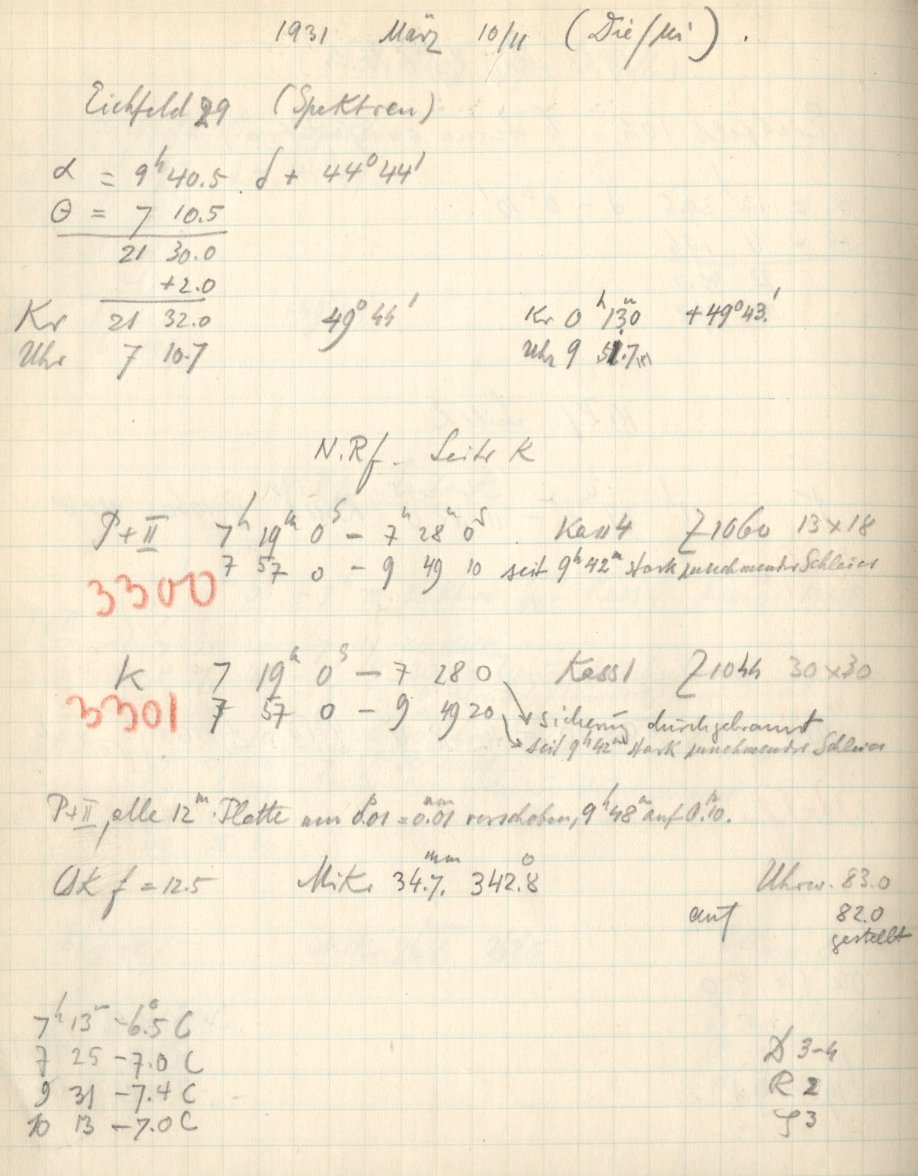 1931 März 10/11 (Die/Mi).
Eichfeld 29 (Spektren)
α = 9h 40.5 δ + 44° 44'
θ = 7 10.5
21 30.0
+2.0
Kr 21 32.0 49° 44' Kr 0h 13m0 +49° 43'
Uhr 7 10.7 Uhr 9 51.7
N.Rf. Seite K
P+II 7h 19m 0s – 7h 28m 0s Kass 4 Z1060 13×18
7 57 0 – 9 49 10 seit 9h 42m stark zunehmender Schleier
3300
K 7 19m 0s – 7 28 0 Kass 1 Z1044 30×30
3301 7 57 0 – 9 49 20 Sicherung durchgebrannt
seit 9h 42m stark zunehmender Schleier
P+II, alle 12m Platte um 0.01 = 0.01mm verschoben, 9h 48m auf 0.10.
f = 12.5 Mikr 34.7mm 342.8° Uhrw. 83.0
auf 82.0
gestellt
7h 13m –6.5° C
7 25 –7.0 C
9 31 –7.4 C
10 13 –7.0 C
D 3-4
R 2
3